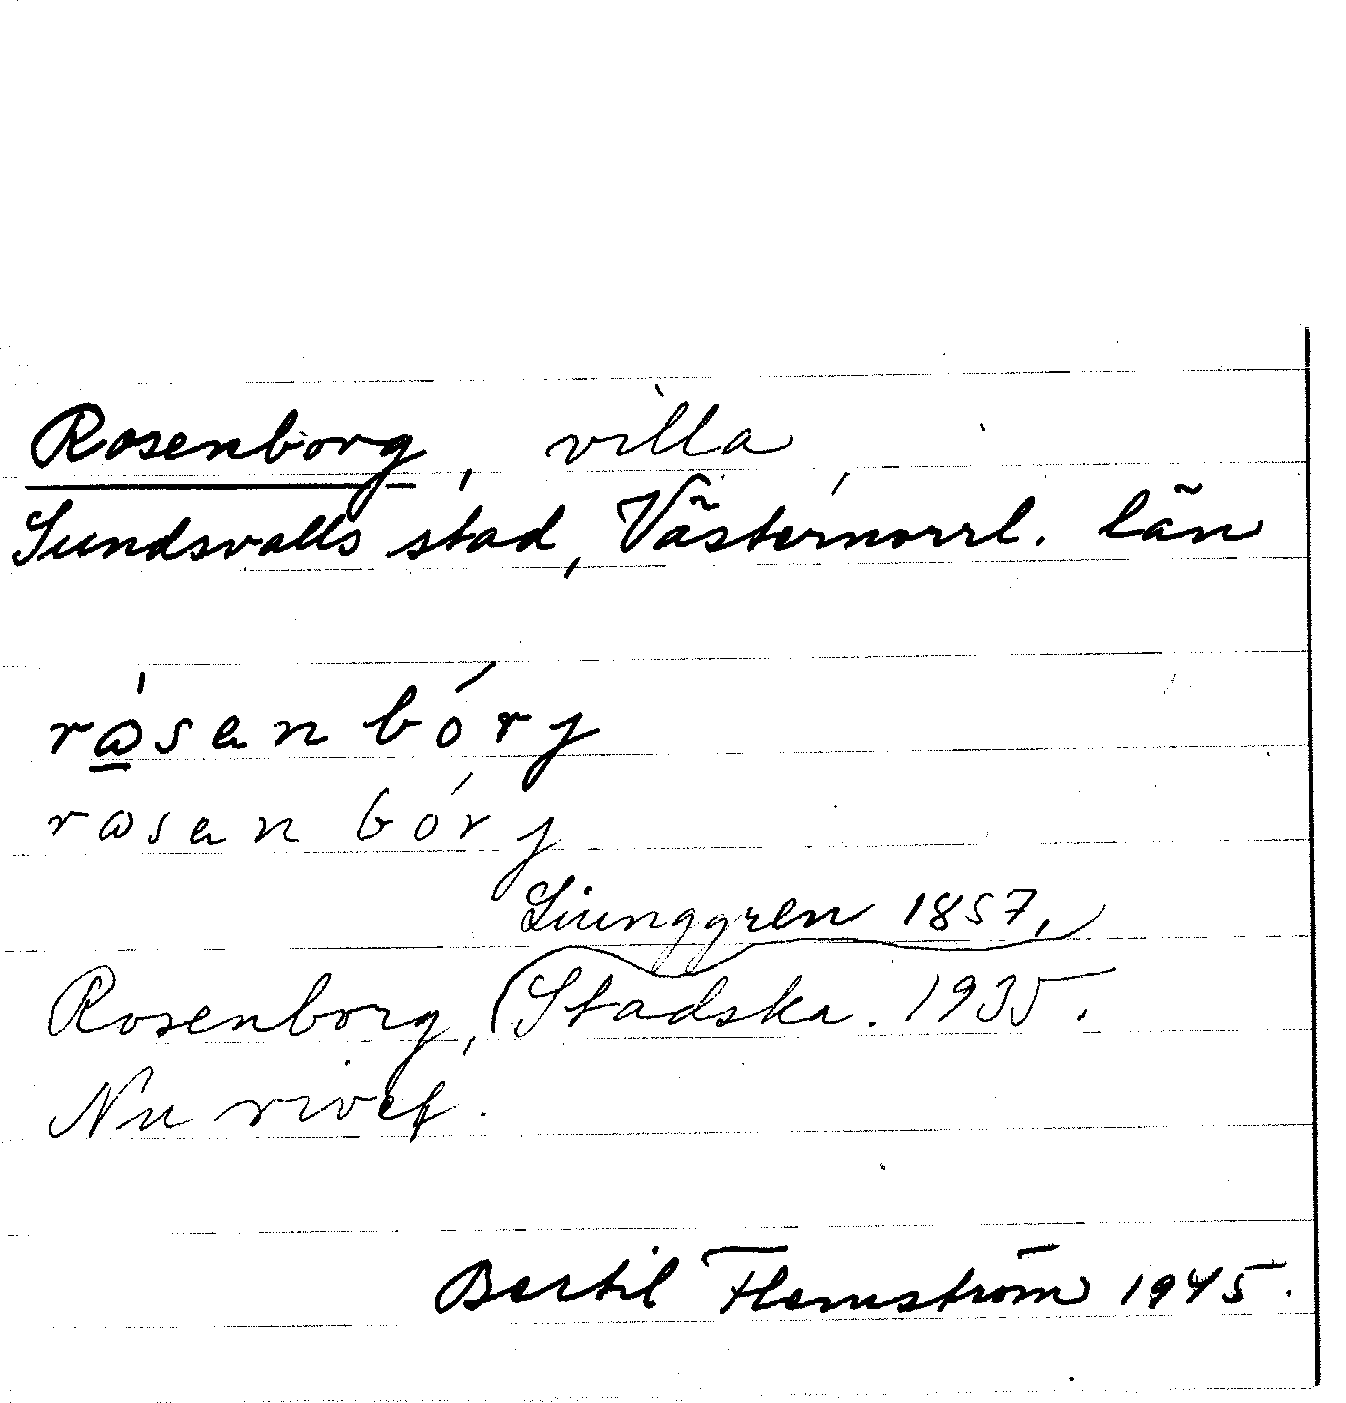 Rosenborg, villa
Sundsvalls stad, Västernorrl. län
rɷ̀sanbórj
rɷsanbórj
Ljunggren 1857,
Rosenborg, (Stadska. 1935.
Nu rivet.
Bertil Flemström 1945.